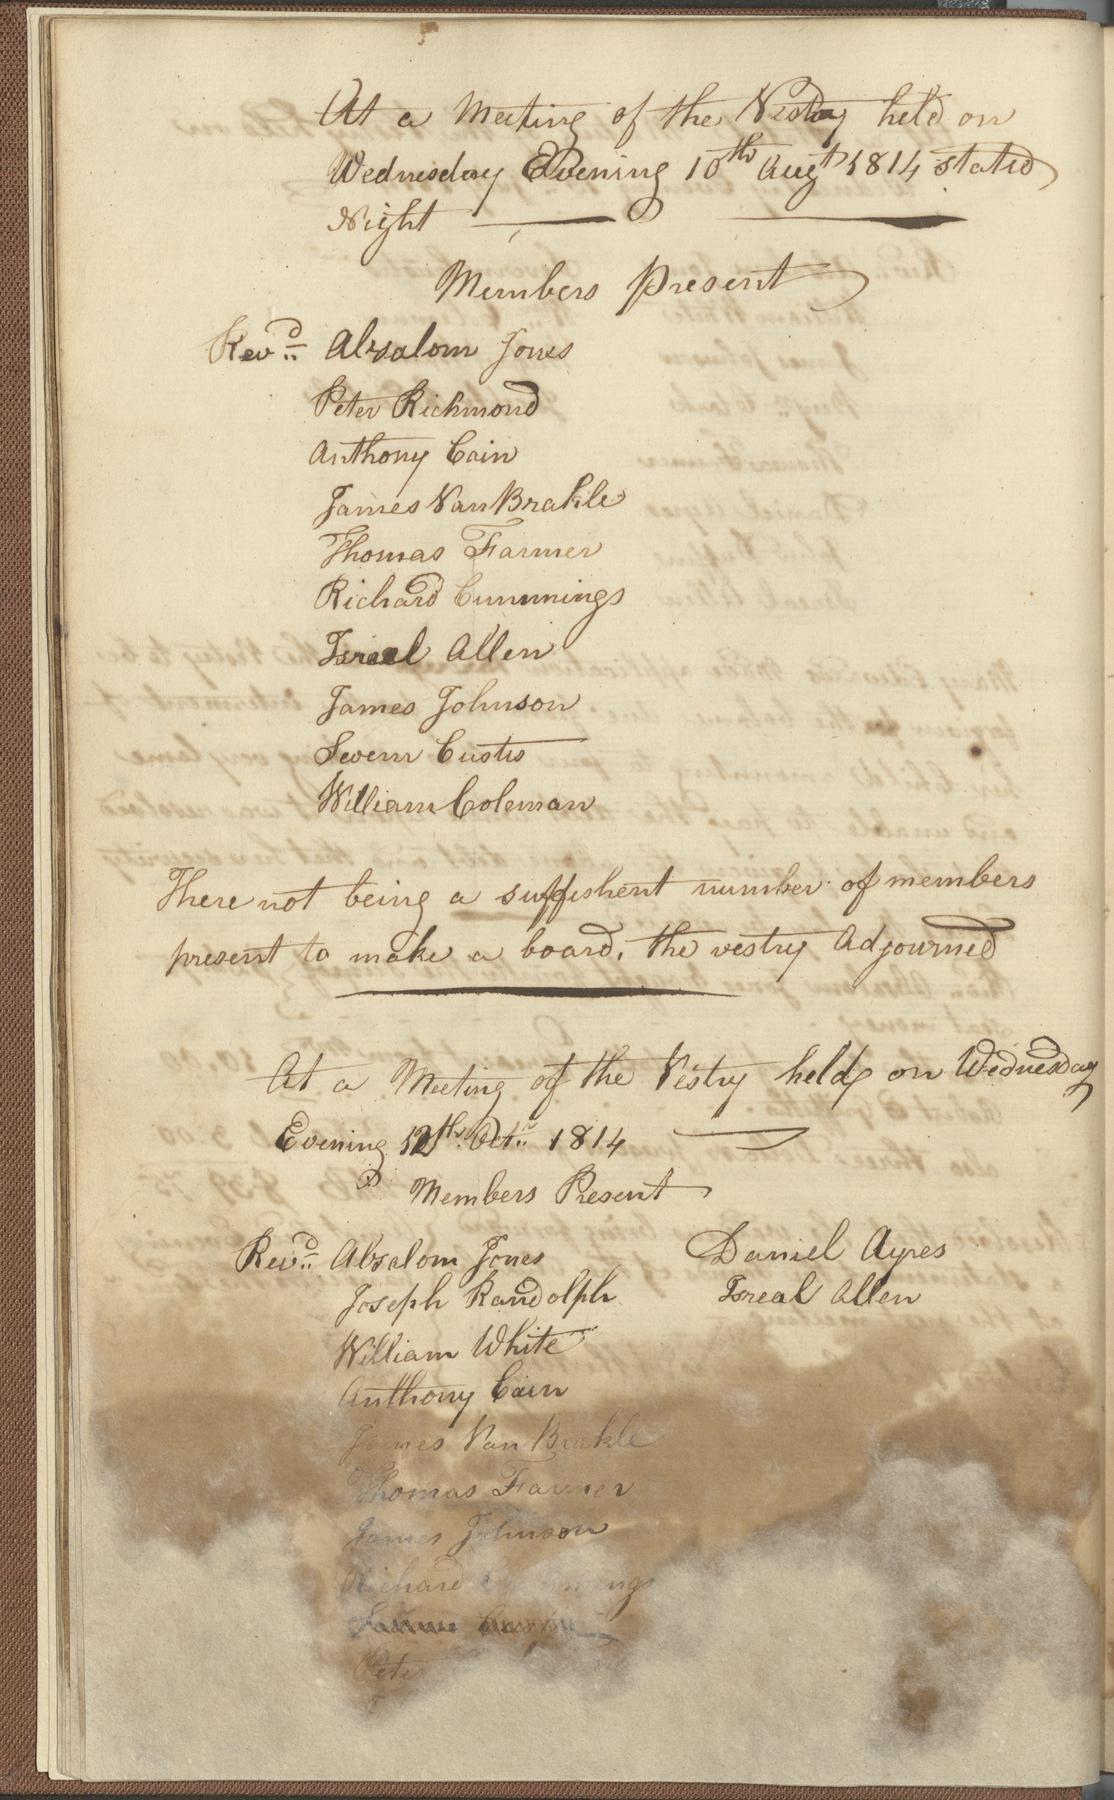 At a Meeting of the Vestry held on
Wednesday Evening 10th Augt 1814 stated
Night
Members Present
Revd Absalom Jones
Peter Richmond
Anthony Cain
James Van Brakle
Thomas Farmer
Richard Cummings
Isreal Allen
James Johnson
Severn Custis
William Coleman
There not being a suffishent number of members
present to make a board, the vestry Adjourned
At a Meeting of the Vestry held on Wednesday
Evening 12th Octr 1814
Members Present
Revd Absalom Jones
Joseph Randolph
William White
Anthony Cain
James Van Brakle
Thomas Farmer
James Johnson
Richard
Daniel Ayres
Isreal Allen